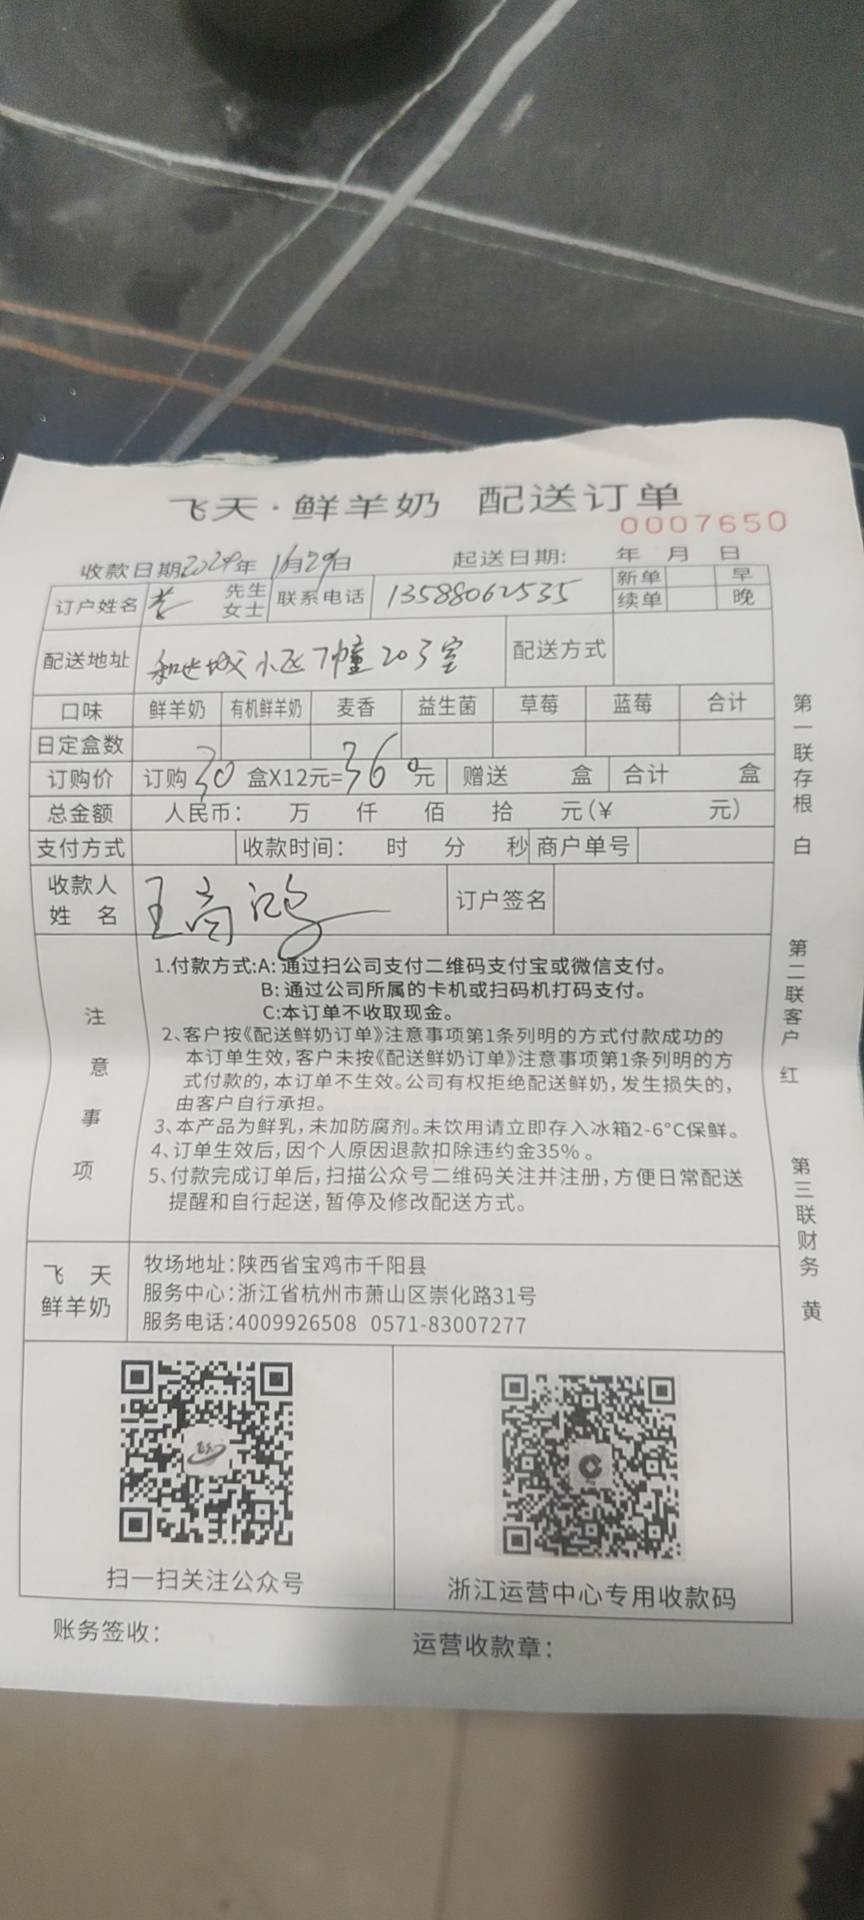 飞天·鲜羊奶 配送订单
0007650
收款日期2024年11月29日 起送日期: 年 月 日
订户姓名 先生 女士 联系电话 13588062535 新单 早 续单 晚
配送地址 和达城小区7幢203室 配送方式
口味 鲜羊奶 有机鲜羊奶 麦香 益生菌 草莓 蓝莓 合计
日定盒数
订购价 订购30盒X12元=360元 赠送 盒 合计 盒
总金额 人民币: 万 仟 佰 拾 元(¥ 元)
支付方式 收款时间: 时 分 秒 商户单号
收款人姓名 王 鸿 订户签名
注意事项
1.付款方式:A:通过扫公司支付二维码支付宝或微信支付。
B:通过公司所属的卡机或扫码机打码支付。
C:本订单不收取现金。
2、客户按《配送鲜奶订单》注意事项第1条列明的方式付款成功的
本订单生效,客户未按《配送鲜奶订单》注意事项第1条列明的方
式付款的,本订单不生效。公司有权拒绝配送鲜奶,发生损失的,
由客户自行承担。
3、本产品为鲜乳,未加防腐剂。未饮用请立即存入冰箱2-6°C保鲜。
4、订单生效后,因个人原因退款扣除违约金35%。
5、付款完成订单后,扫描公众号二维码关注并注册,方便日常配送
提醒和自行起送,暂停及修改配送方式。
飞天鲜羊奶
牧场地址:陕西省宝鸡市千阳县
服务中心:浙江省杭州市萧山区崇化路31号
服务电话:4009926508 0571-83007277
扫一扫关注公众号
浙江运营中心专用收款码
账务签收: 运营收款章:
第一联存根 白
第二联客户 红
第三联财务 黄